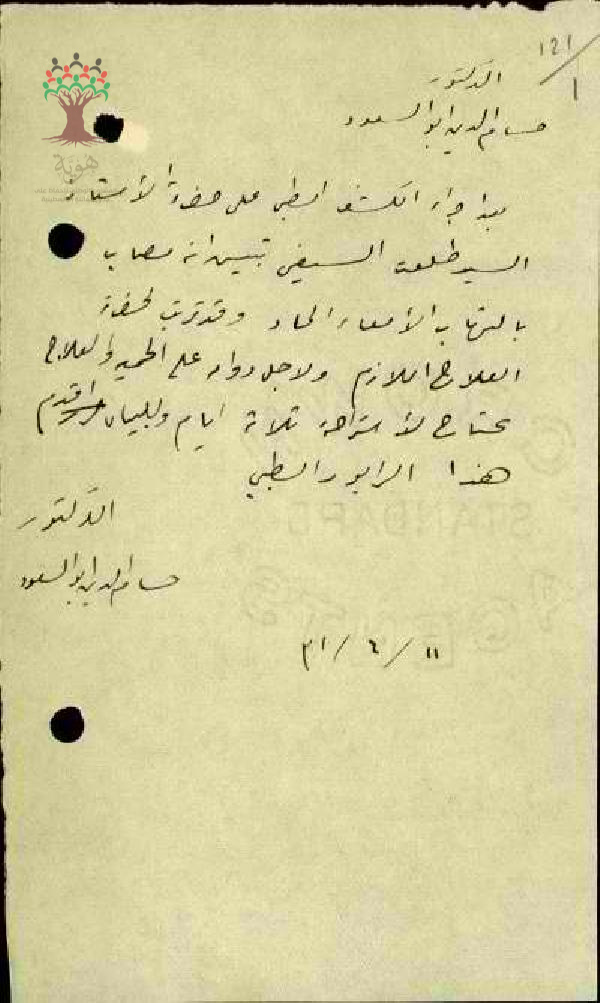 ١٢١
١
الدكتور
حسام الدين ابو السعود
هوية
بعد اجراء الكشف الطبي على حضرة الأستاذ
السيد طلعت السيفي تبين انه مصاب
بالتهاب الأمعاء الحاد وقد ترتب لحضرته
العلاج اللازم ولاجل دوامه على الحمية والعلاج
يحتاج لأستراحة ثلاثة ايام وللبيان اقدم
هذا الرابور الطبي
الدكتور
حسام الدين ابو السعود
١١ / ٦ / ٣١
STANDARD